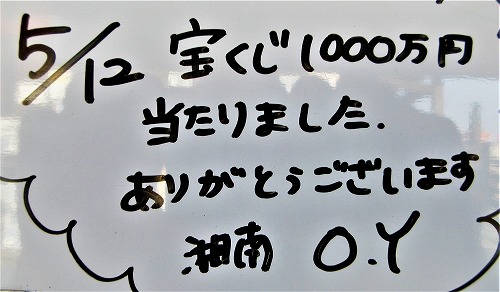 5/12 宝くじ1000万円
当たりました.
ありがとうございます
湘南 O.Y